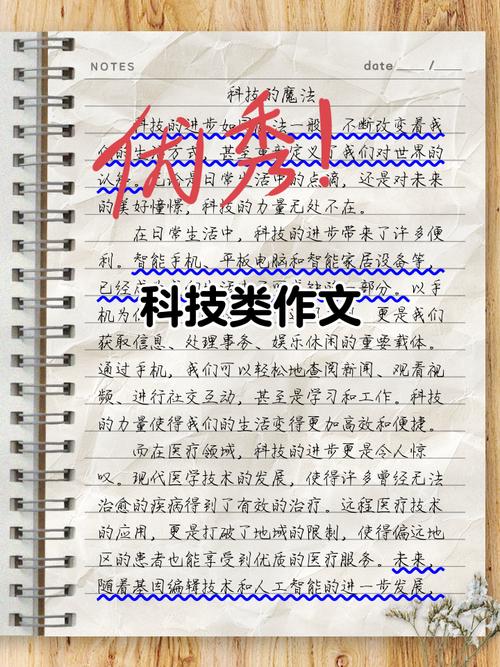 NOTES
date ____ /___
科技的魔法
科技的进步如同魔法一般，不断改变着我
们的生活方式，甚至重新定义了我们对世界的
认知。无论是日常生活中的点滴，还是对未来
的美好憧憬，科技的力量无处不在。
优秀！
在日常生活中，科技的进步带来了许多便
利。智能手机、平板电脑和智能家居设备等，
已经成为我们生活中不可或缺的一部分。以手
科技类作文
机为 更是我们
获取信息、处理事务、娱乐休闲的重要载体。
通过手机，我们可以轻松地查阅新闻、观看视
频、进行社交互动，甚至是学习和工作。科技
的力量使得我们的生活变得更加高效和便捷。
而在医疗领域，科技的进步更是令人惊
叹。现代医学技术的发展，使得许多曾经无法
治愈的疾病得到了有效的治疗。远程医疗技术
的应用，更是打破了地域的限制，使得偏远地
区的患者也能享受到优质的医疗服务。未来，
随着基因编辑技术和人工智能的进一步发展，